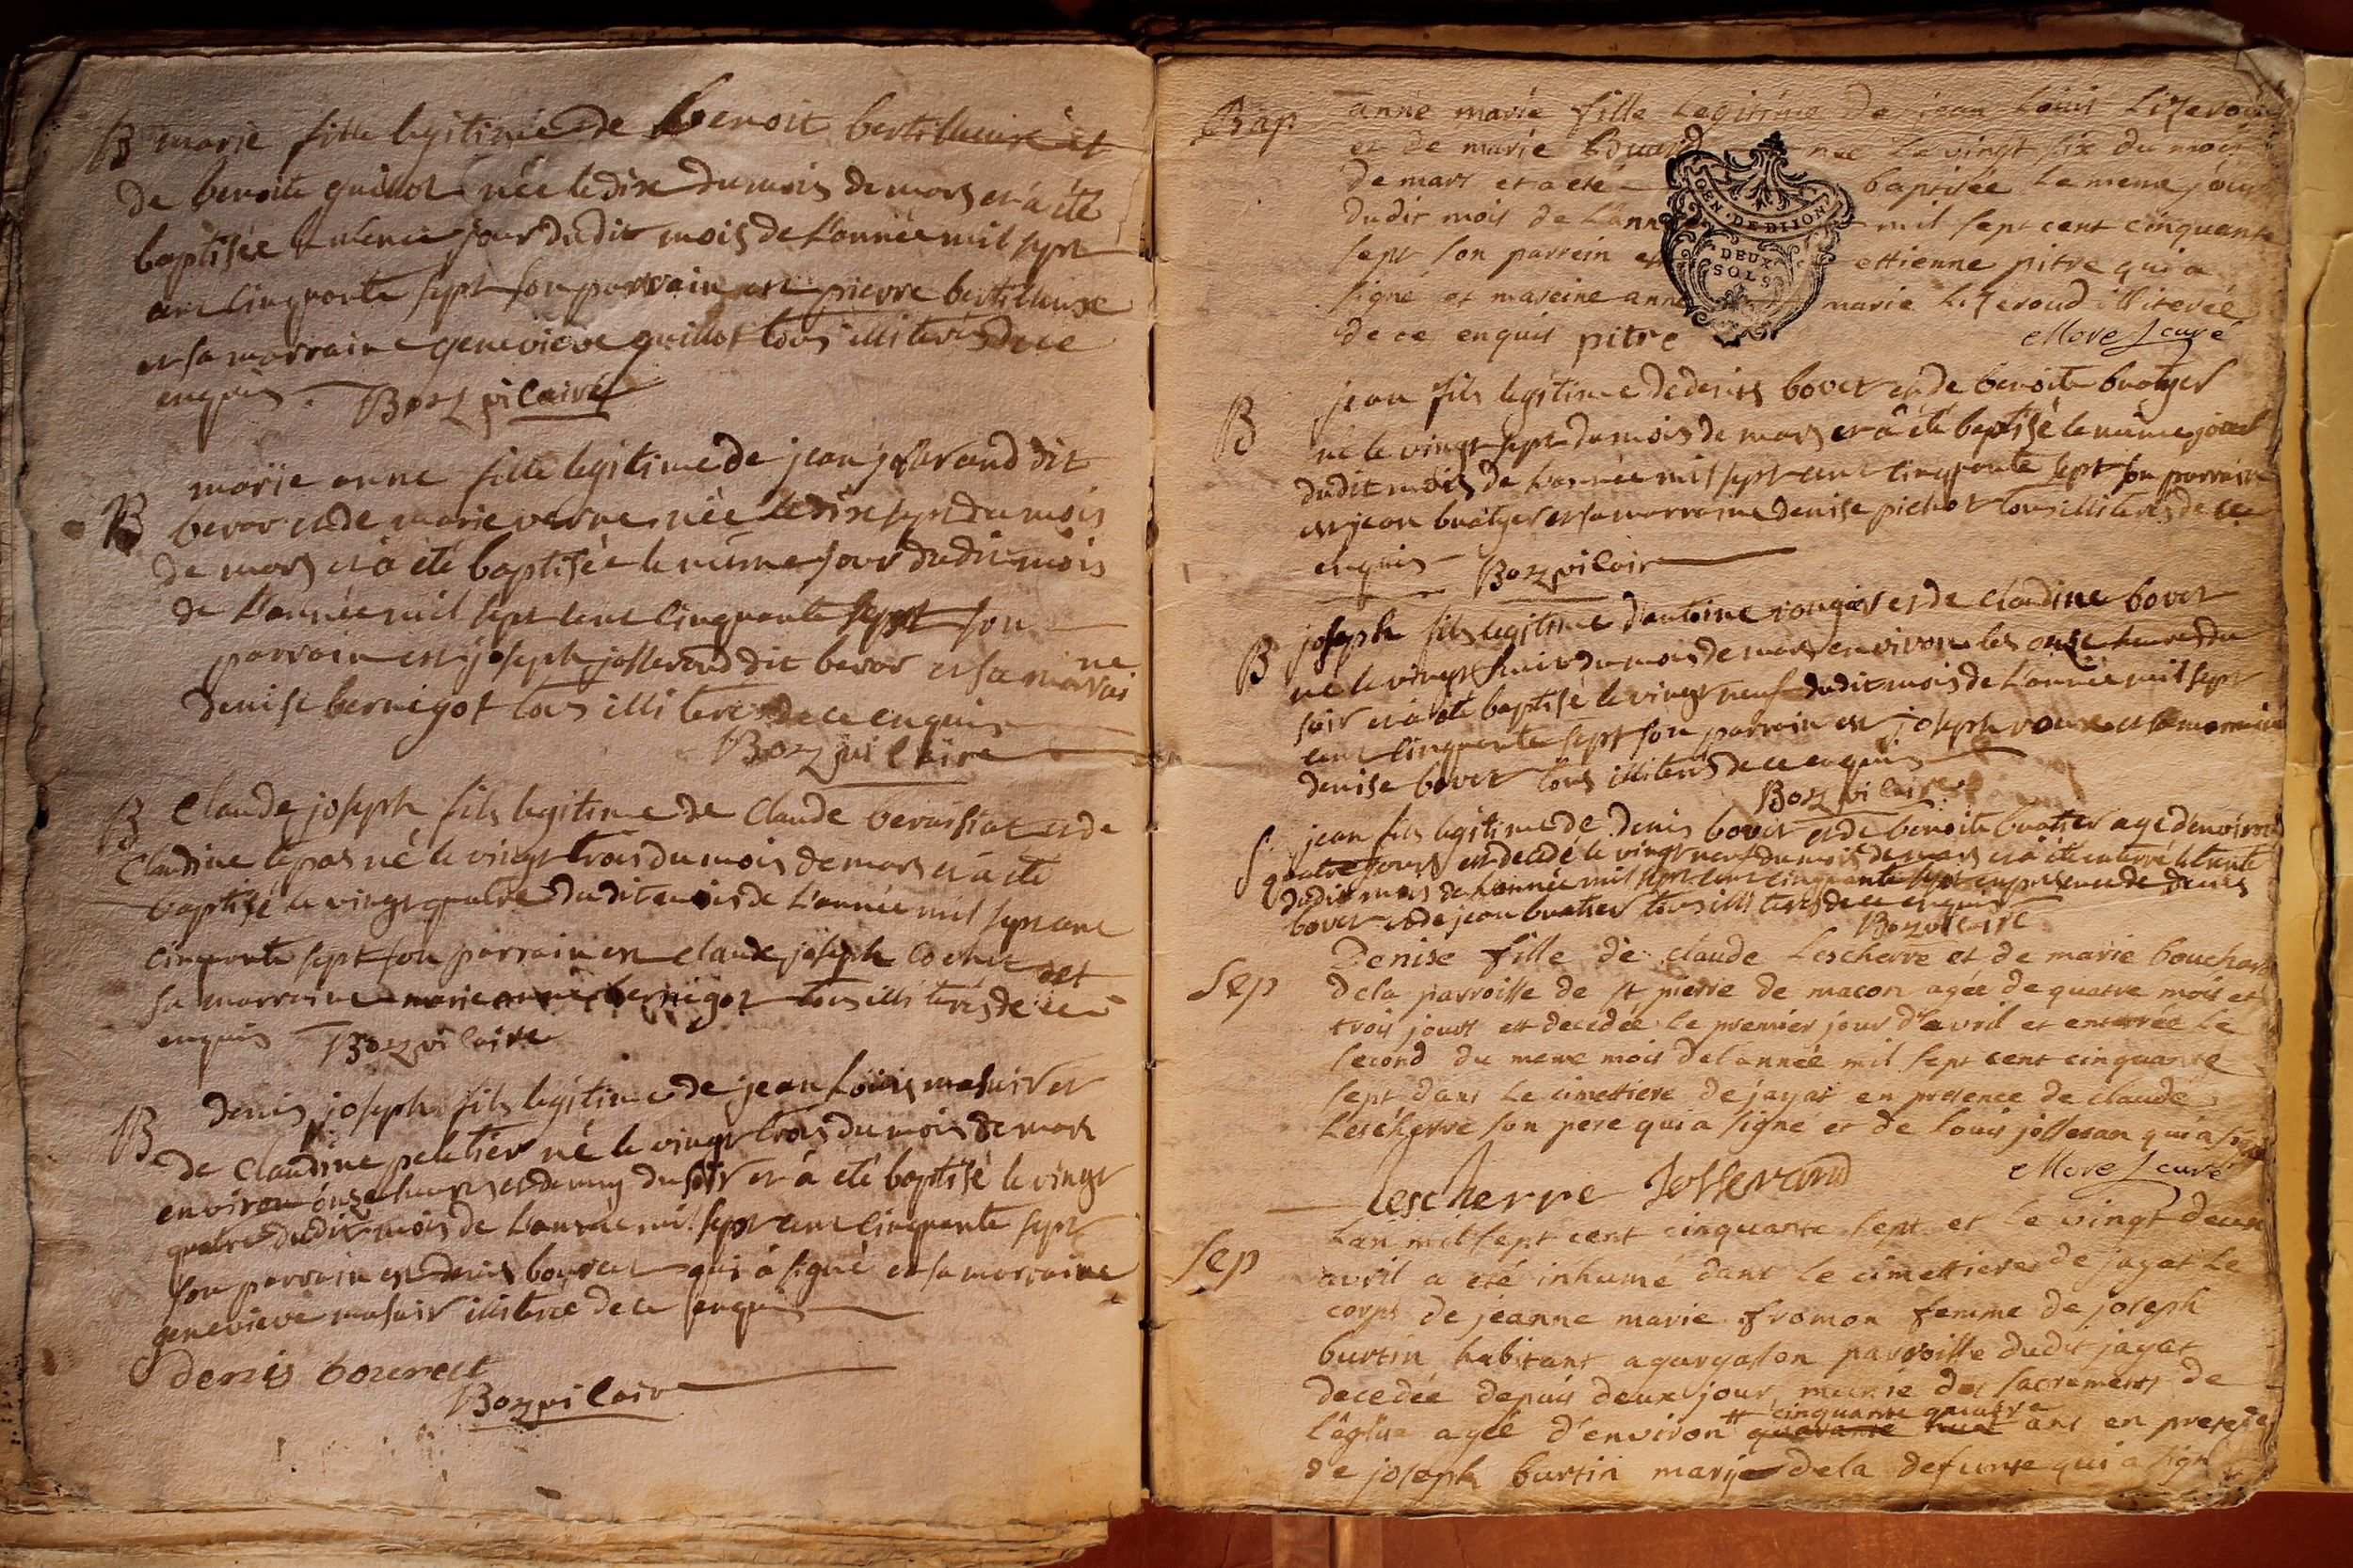 B marie fille legitime de benoit bertilleuxe et
de benoite guillot née le dix du mois de mars et a été
baptisée le meme jour dudit mois de l'année mil sept
cent cinquante sept son parrain est pierre bertilleuxe
et sa marraine genevieve guillot tous illiterés de ce
enquis. Boz vicaire
B marie anne fille legitime de jean josserand dit
bevor et de marie verne née le dix sept du mois
de mars et a été baptisée le même jour dudit mois
de l'année mil sept cent cinquante sept son
parrain est joseph josserand dit bevor et sa marrai ne
denise bernigot tous illiterés de ce enquis
Boz vicaire
B Claude joseph fils legitime de Claude veraissiat et de
Claudine lepas né le vingt trois du mois de mars et a été
baptisé le vingt quatre dudit mois de l'année mil sept cent
cinquante sept son parrain est claude joseph et
sa marraine marie anne bernigot tous illiterés de ce
enquis Boz vicaire
B denis joseph fils legitime de jean Louis masuir et
de Claudine peletier né le vingt trois du mois de mars
environ onze heures et demy du soir et a été baptisé le vingt
quatre dudit mois de l'année mil sept cent cinquante sept
son parrain est denis bouret qui a signé et sa marraine
genevieve masuir illiterée de ce enquis
denis bourect
Boz vicair
Bap anne marie fille legitime de jean Louis Lizeroud
et de marie née le vingt six du mois
de mars et a eté baptisée le meme jour
dudit mois de l'année mil sept cent cinquante
sept son parrein est ettienne pitre qui a
signé et mareine anne marie Lizeroud illiterée
de ce enquis pitre Morel curé
GEN · DE DIJON
DEUX
SOLS
B jean fils legitime de denis bovet et de benoite buatyer
né le vingt sept du mois de mars et a été baptisé le même jour
dudit mois de l'année mil sept cent cinquante sept son parrain
est jean buatyer et sa marraine denise pichot tous illiterés de ce
enquis Boz vicair
B joseph fils legitime d'antoine et de claudine bovet
né le vingt huit du mois de mars environ les onze heures du
soir et a été baptisé le vingt neuf dudit mois de l'année mil sept
cent cinquante sept son parrain est joseph roux et sa marraine
denise bovet tous illiterés de ce enquis
Boz vicaire
S. jean fils legitime de denis bovet et de benoite buatier agé d'environ
quatre jours est decedé le vingt neuf du mois de mars et a été enterré le trente
dudit mois de l'année mil sept cent cinquante sept en presence de denis
bovet et de jean buatier tous illiterés de ce enquis
Boz vicaire
Sep Denise fille de claude Lescherre et de marie bouchard
dela parroisse de st pierre de macon agée de quatre mois et
trois jours est decedée le premier jour d'avril et enterrée le
second du meme mois del'année mil sept cent cinquante
sept dans le cimettiere de jayat en presence de claude
Lescherre son pere qui a signe et de Louis josseran qui a signé
lescherre Josserand Morel curé
Sep L'an mil sept cent cinquante sept et le vingt deux
avril a eté inhumé dans le cimettiere de jayat le
corps de jeanne marie fromon femme de joseph
burtin habitant a gargasson parroisse dudit jayat
decedée depuis deux jour munie des sacrements de
cinquante quatre
l'eglise agée d'environ quarante huit ans en presence
de joseph burtin mary dela defunte qui a signé